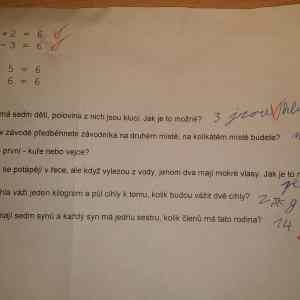 + 2 = 6
- 3 = 6
5 = 6
6 = 6
má sedm dětí, polovina z nich jsou kluci. Jak je to možné? 3 jsou
v závodě předběhnete závodníka na druhém místě, na kolikátém místě budete?
první - kuře nebo vejce?
se potápějí v řece, ale když vylezou z vody, jenom dva mají mokré vlasy. Jak je to
váží jeden kilogram a půl cihly k tomu, kolik budou vážit dvě cihly? 2
mají sedm synů a každý syn má jednu sestru, kolik členů má tato rodina? 14